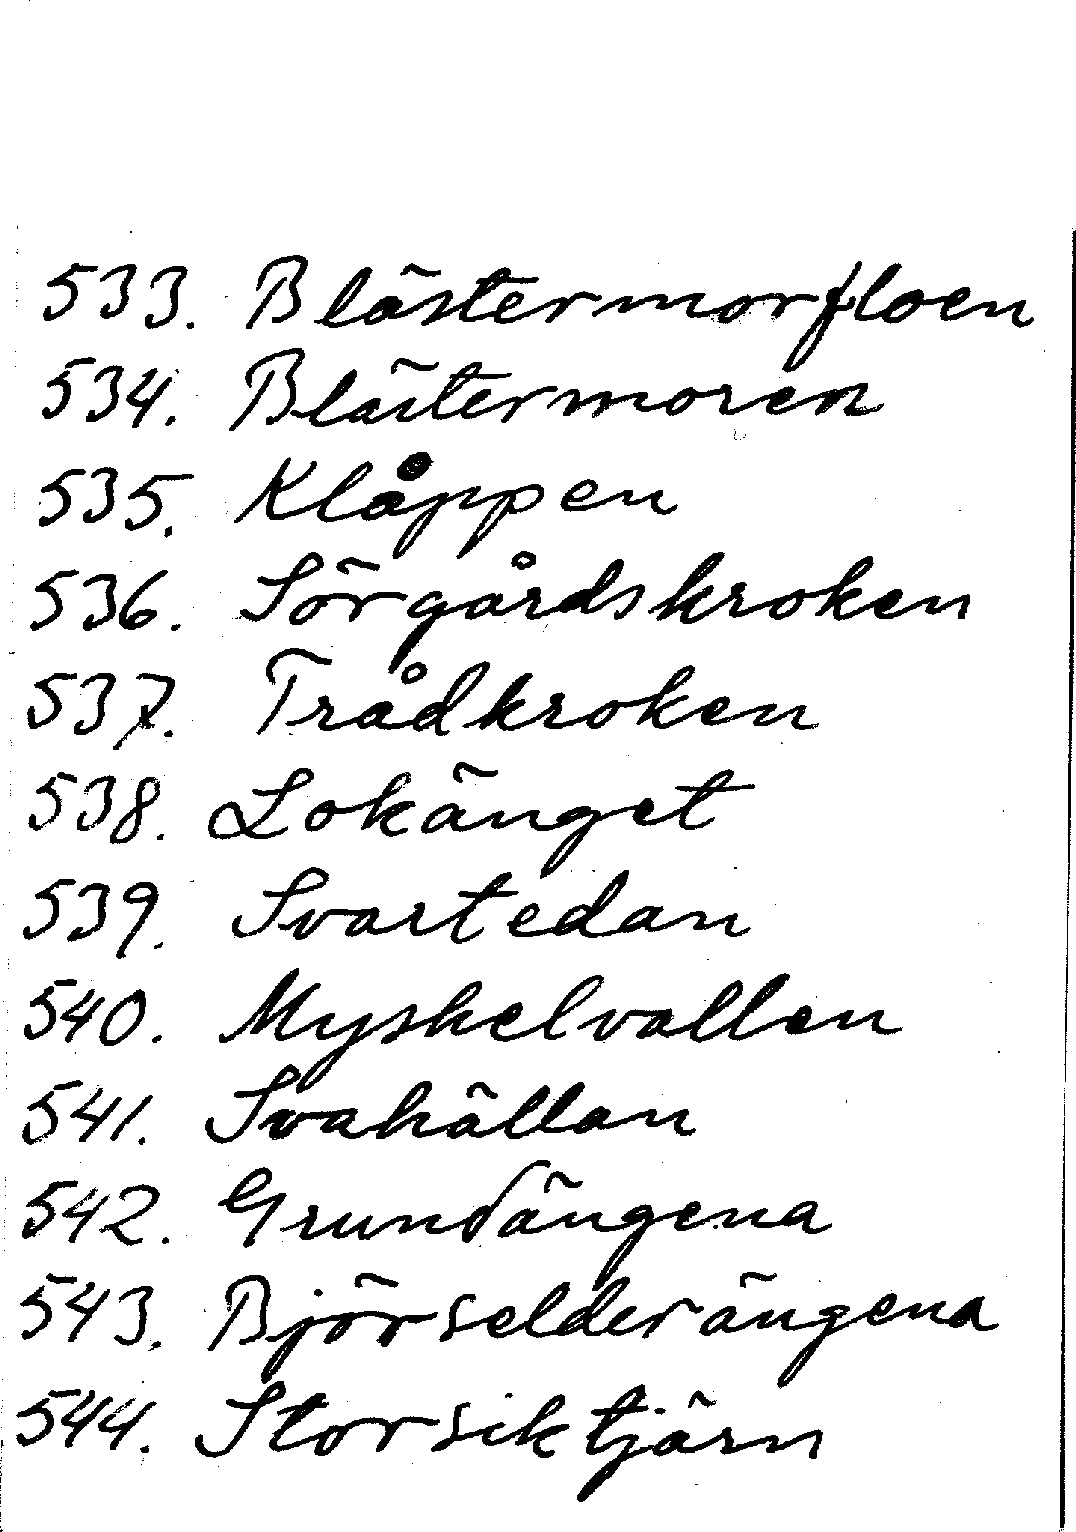 533. Blästermorfloen
534. Blästermoren
535. Klåppen
536. Sörgårdskroken
537. Trådkroken
538. Lokänget
539. Svartedan
540. Myskelvallen
541. Svahällan
542. Grundängena
543. Björselderängena
544. Storsiktjärn